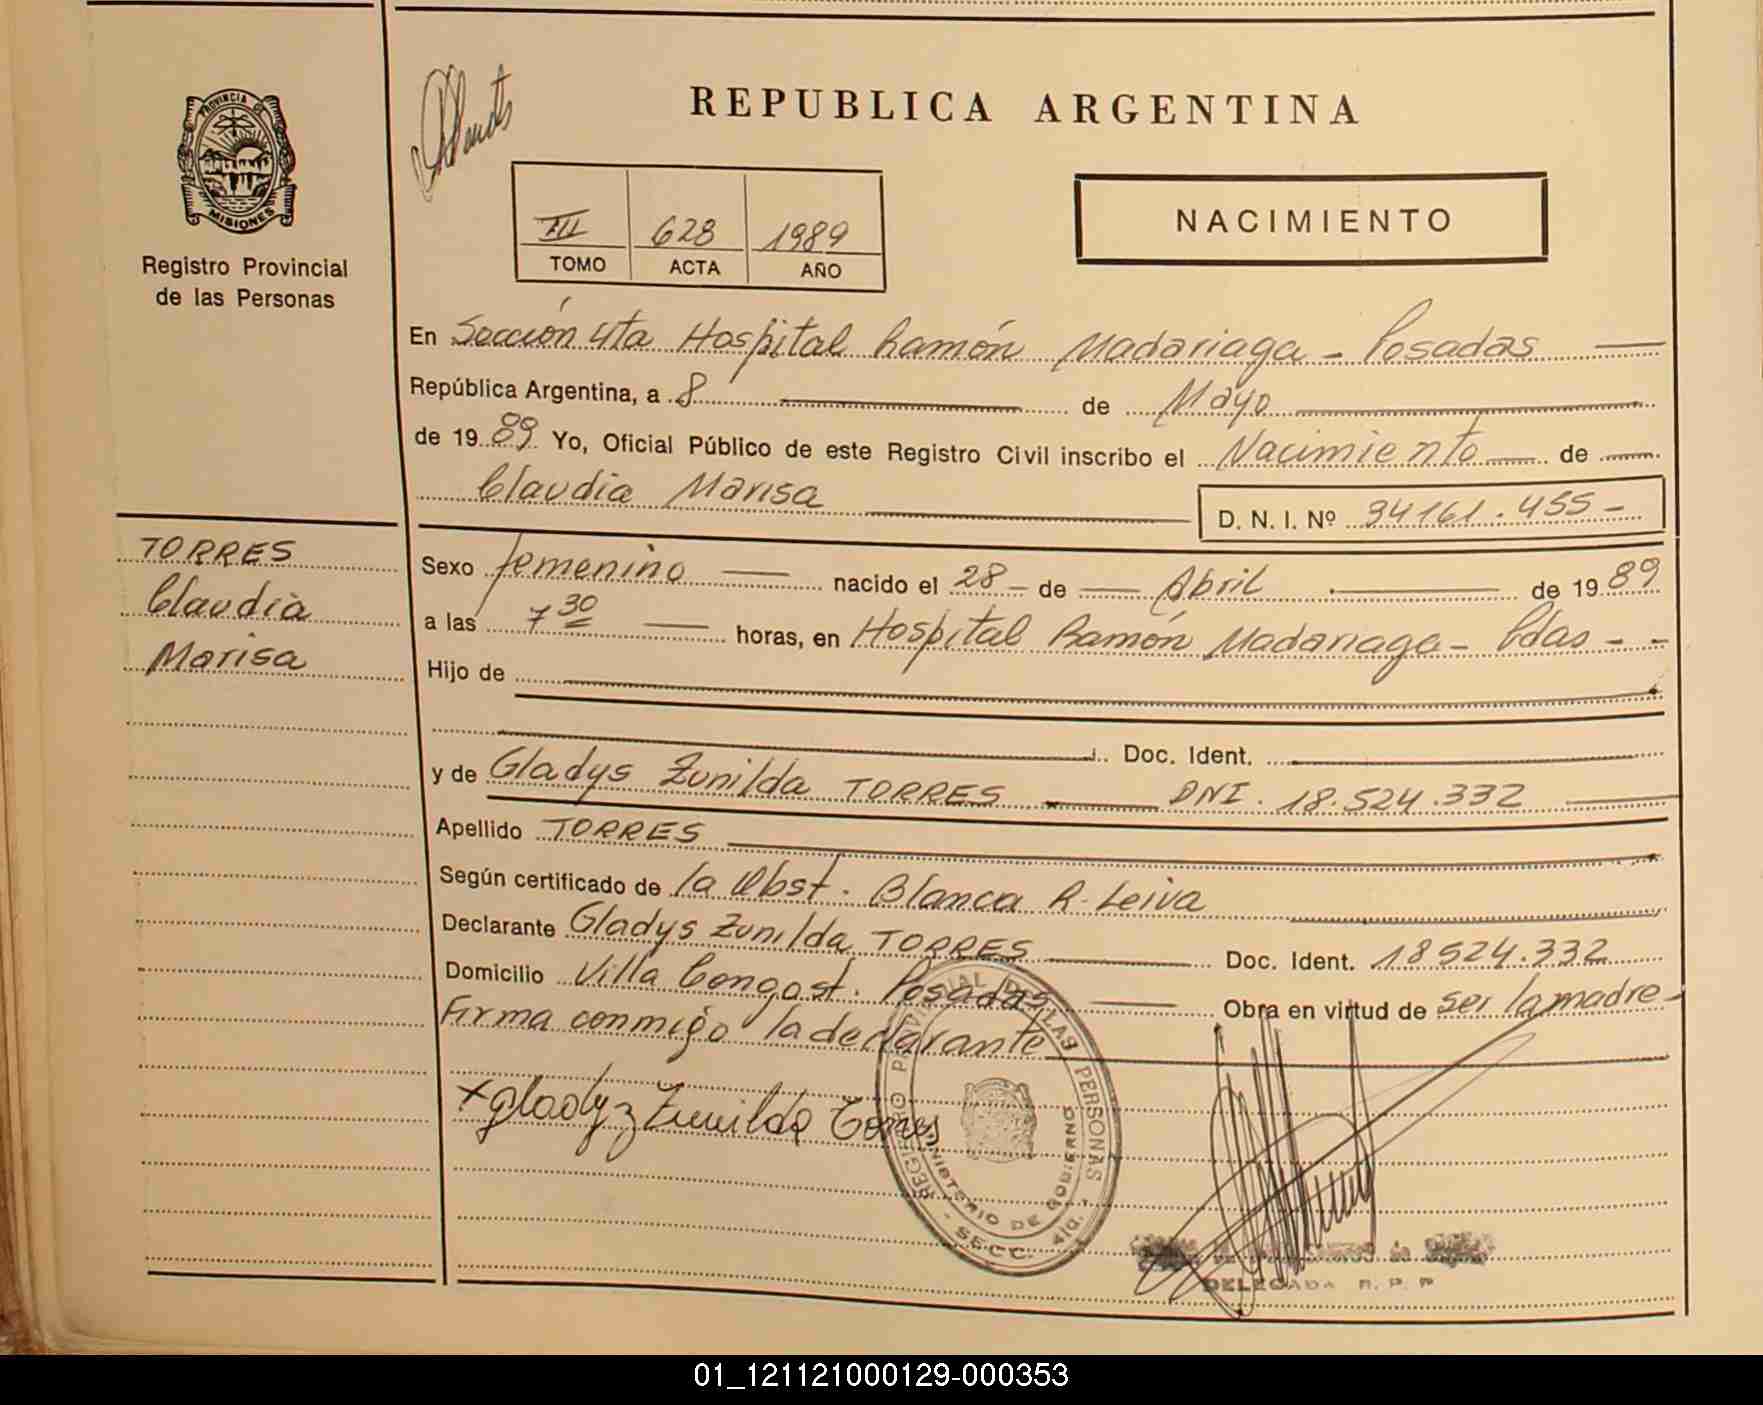 REPUBLICA ARGENTINA
PROVINCIA DE
MISIONES
Registro Provincial
de las Personas
III 628 1989
TOMO ACTA AÑO
NACIMIENTO
En Sección 4ta Hospital Ramón Madariaga - Posadas
República Argentina, a 8 de Mayo
de 1989 Yo, Oficial Público de este Registro Civil inscribo el Nacimiento de
Claudia Marisa
D. N. I. Nº 34161.455-
TORRES
Claudia
Marisa
Sexo femenino nacido el 28 de Abril de 1989
a las 7 30 horas, en Hospital Ramón Madariaga - Pdas - -
Hijo de
Doc. Ident.
y de Gladys Zunilda TORRES DNI. 18.524.332
Apellido TORRES
Según certificado de la Obst. Blanca R. Leiva
Declarante Gladys Zunilda TORRES Doc. Ident. 18524.332
Domicilio Villa Congost. Posadas Obra en virtud de ser la madre-
Firma conmigo la declarante
x Gladyz Zunilda Torres
REGISTRO PROVINCIAL DE LAS PERSONAS
MINISTERIO DE GOBIERNO
- SECC. 4ta. -
DELEGADA R. P. P
01_121121000129-000353